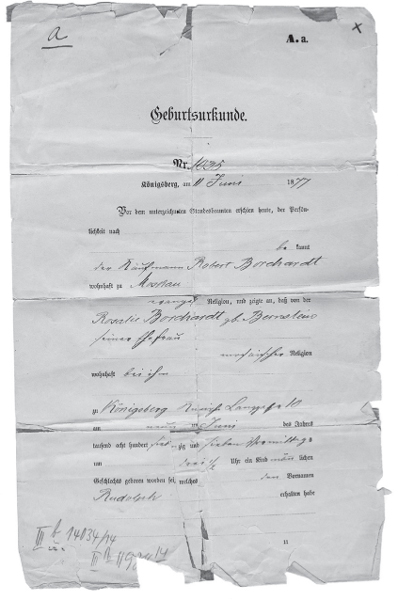 a
A. a.
x
Geburtsurkunde.
Nr. 1035
Königsberg, am 11 Juni 1877
Vor dem unterzeichneten Standesbeamten erschien heute, der Persön-
lichkeit nach
be kannt
der Kaufmann Robert Borchardt
wohnhaft zu Moskau
evangel Religion, und zeigte an, daß von der
Rosalie Borchardt gb. Bernstein
seiner Ehefrau
mosaischer Religion
wohnhaft bei ihm
zu Königsberg Kneiph. Langgasse
am Juni des Jahres
tausend acht hundert siebenzig und sieben Vormittags
um drei ½ Uhr ein Kind männ lichen
Geschlechts geboren worden sei, welches den Vornamen
Rudolph erhalten habe
11